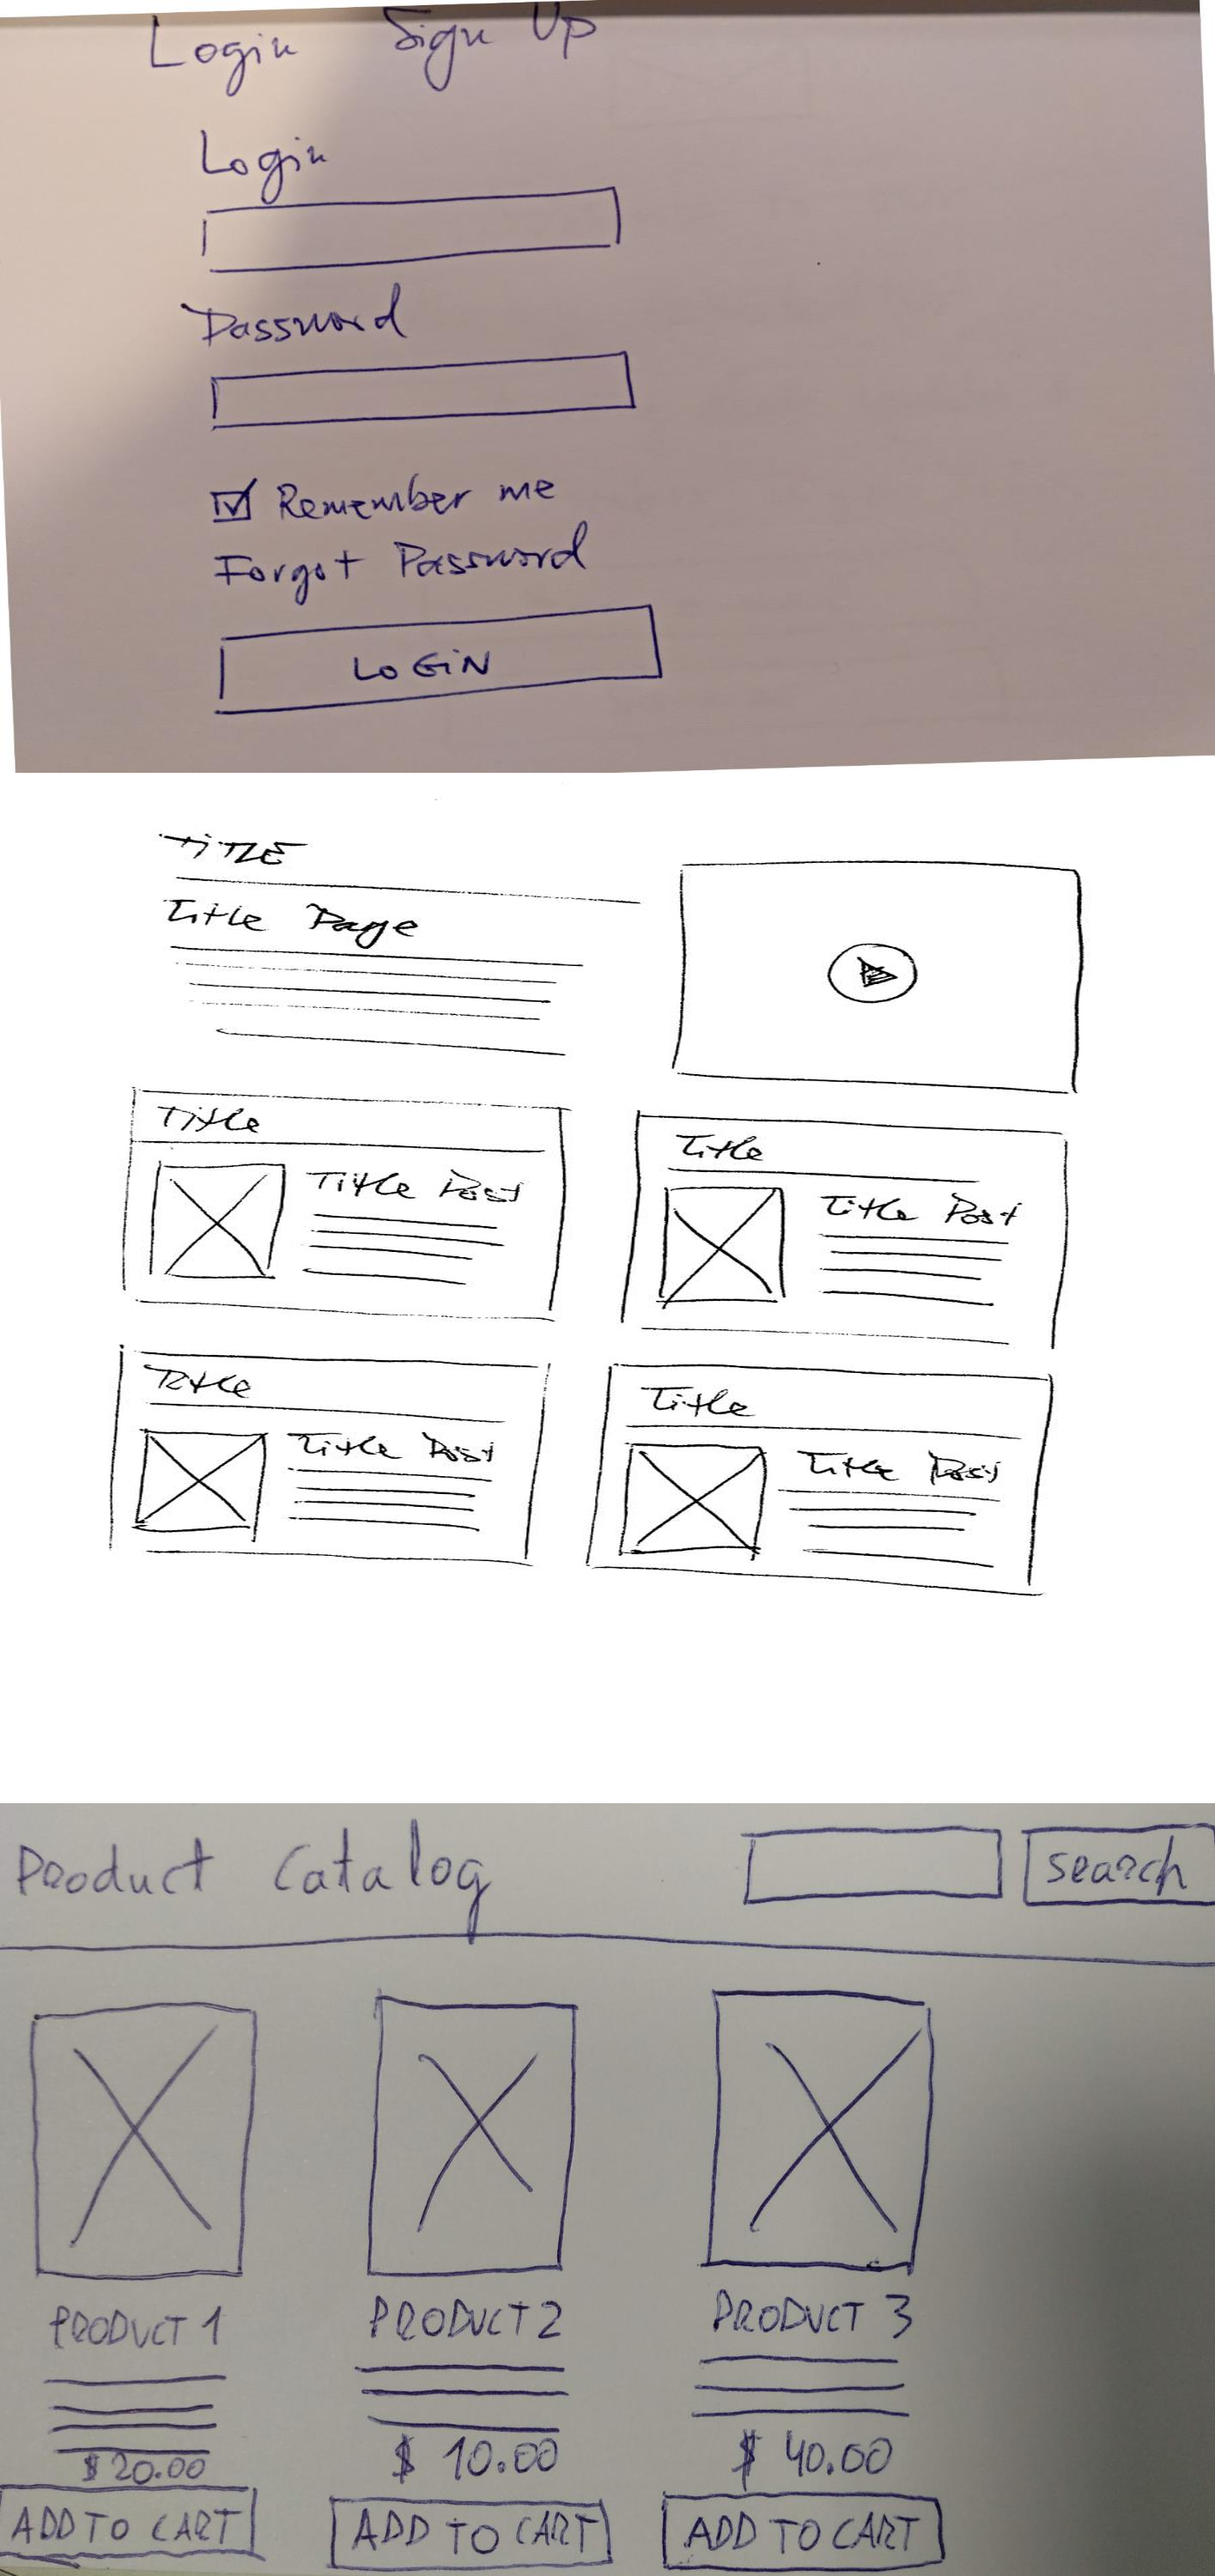 Login Sign Up
Login
Password
Remember me
Forgot Password
LOGIN
TITLE
Title Page
Title
Title Post
Title
Title Post
Title
Title Post
Title
Title Post
Product Catalog search
PRODUCT 1 PRODUCT 2 PRODUCT 3
$20.00 $ 10.00 $ 40.00
ADD TO CART ADD TO CART ADD TO CART